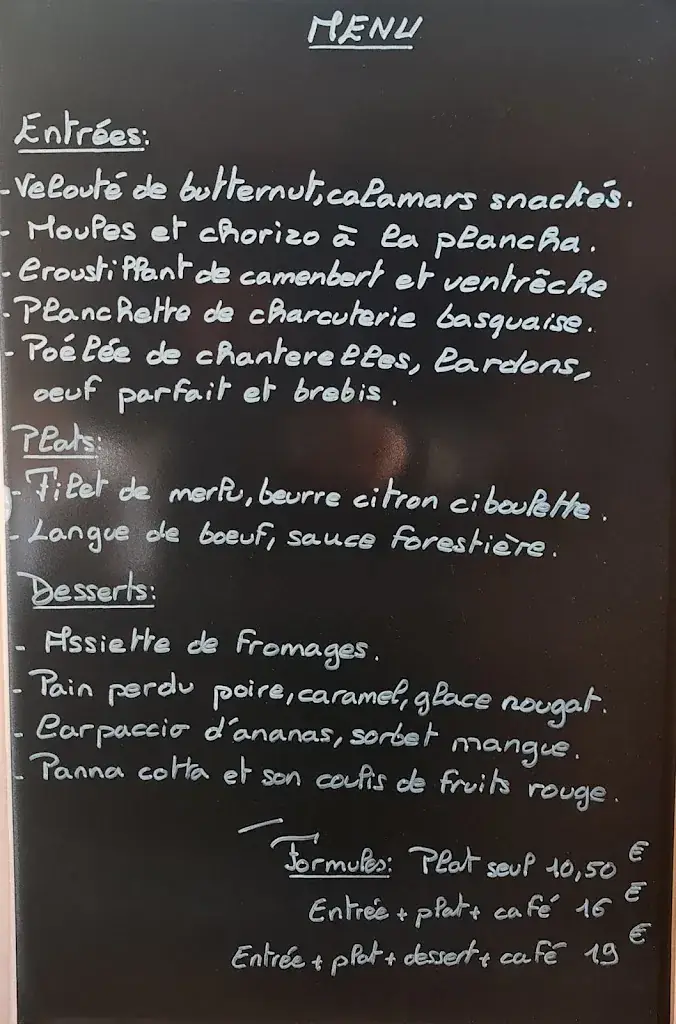 MENU
Entrées:
- Velouté de butternut, calamars snackés.
- Moules et chorizo à la plancha.
- Croustillant de camenbert et ventrêche
- Planchette de charcuterie basquaise.
- Poélée de chanterelles, lardons,
oeuf parfait et brebis.
Plats:
- Filet de merlu, beurre citron ciboulette.
- Langue de boeuf, sauce forestière.
Desserts:
- Assiette de fromages.
- Pain perdu poire, caramel, glace nougat.
- Carpaccio d'ananas, sorbet mangue.
- Panna cotta et son coulis de fruits rouge.
Formules: Plat seul 10,50 €
Entrée + plat + café 16 €
Entrée + plat + dessert + café 19 €